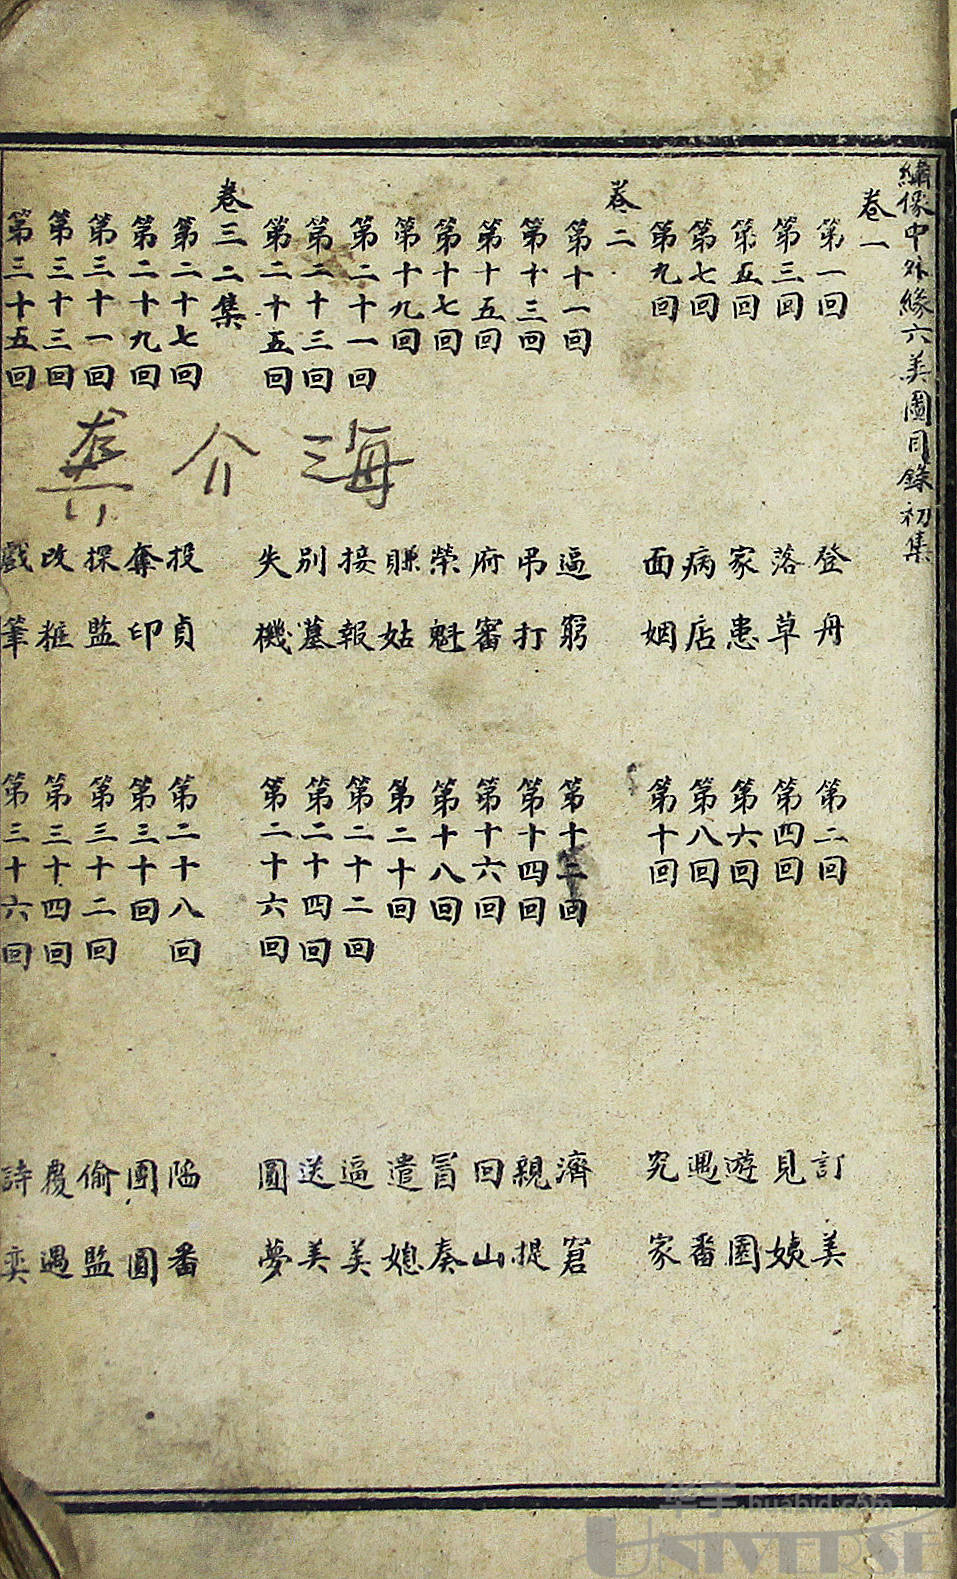 繡像中外緣六美圖目錄初集
卷一
第一回 登舟 第二回 訂美
第三回 落草 第四回 見姨
第五回 家患 第六回 遊園
第七回 病店 第八回 遇番
第九回 面姻 第十回 究家
卷二
第十一回 逼窮 第十二回 濟窘
第十三回 弔打 第十四回 親提
第十五回 府審 第十六回 回山
第十七回 榮魁 第十八回 冒奏
第十九回 賺姑 第二十回 遣媳
第二十一回 接報 第二十二回 逼美
第二十三回 別墓 第二十四回 送美
第二十五回 失機 第二十六回 圓夢
卷三 二集
第二十七回 投貞 第二十八回 陷番
第二十九回 奪印 第三十回 團圓
第三十一回 探監 第三十二回 偷監
第三十三回 改粧 第三十四回 覆遇
第三十五回 戲筆 第三十六回 詩奕
海介龔
华宇 huabid.com
UNIVERSE